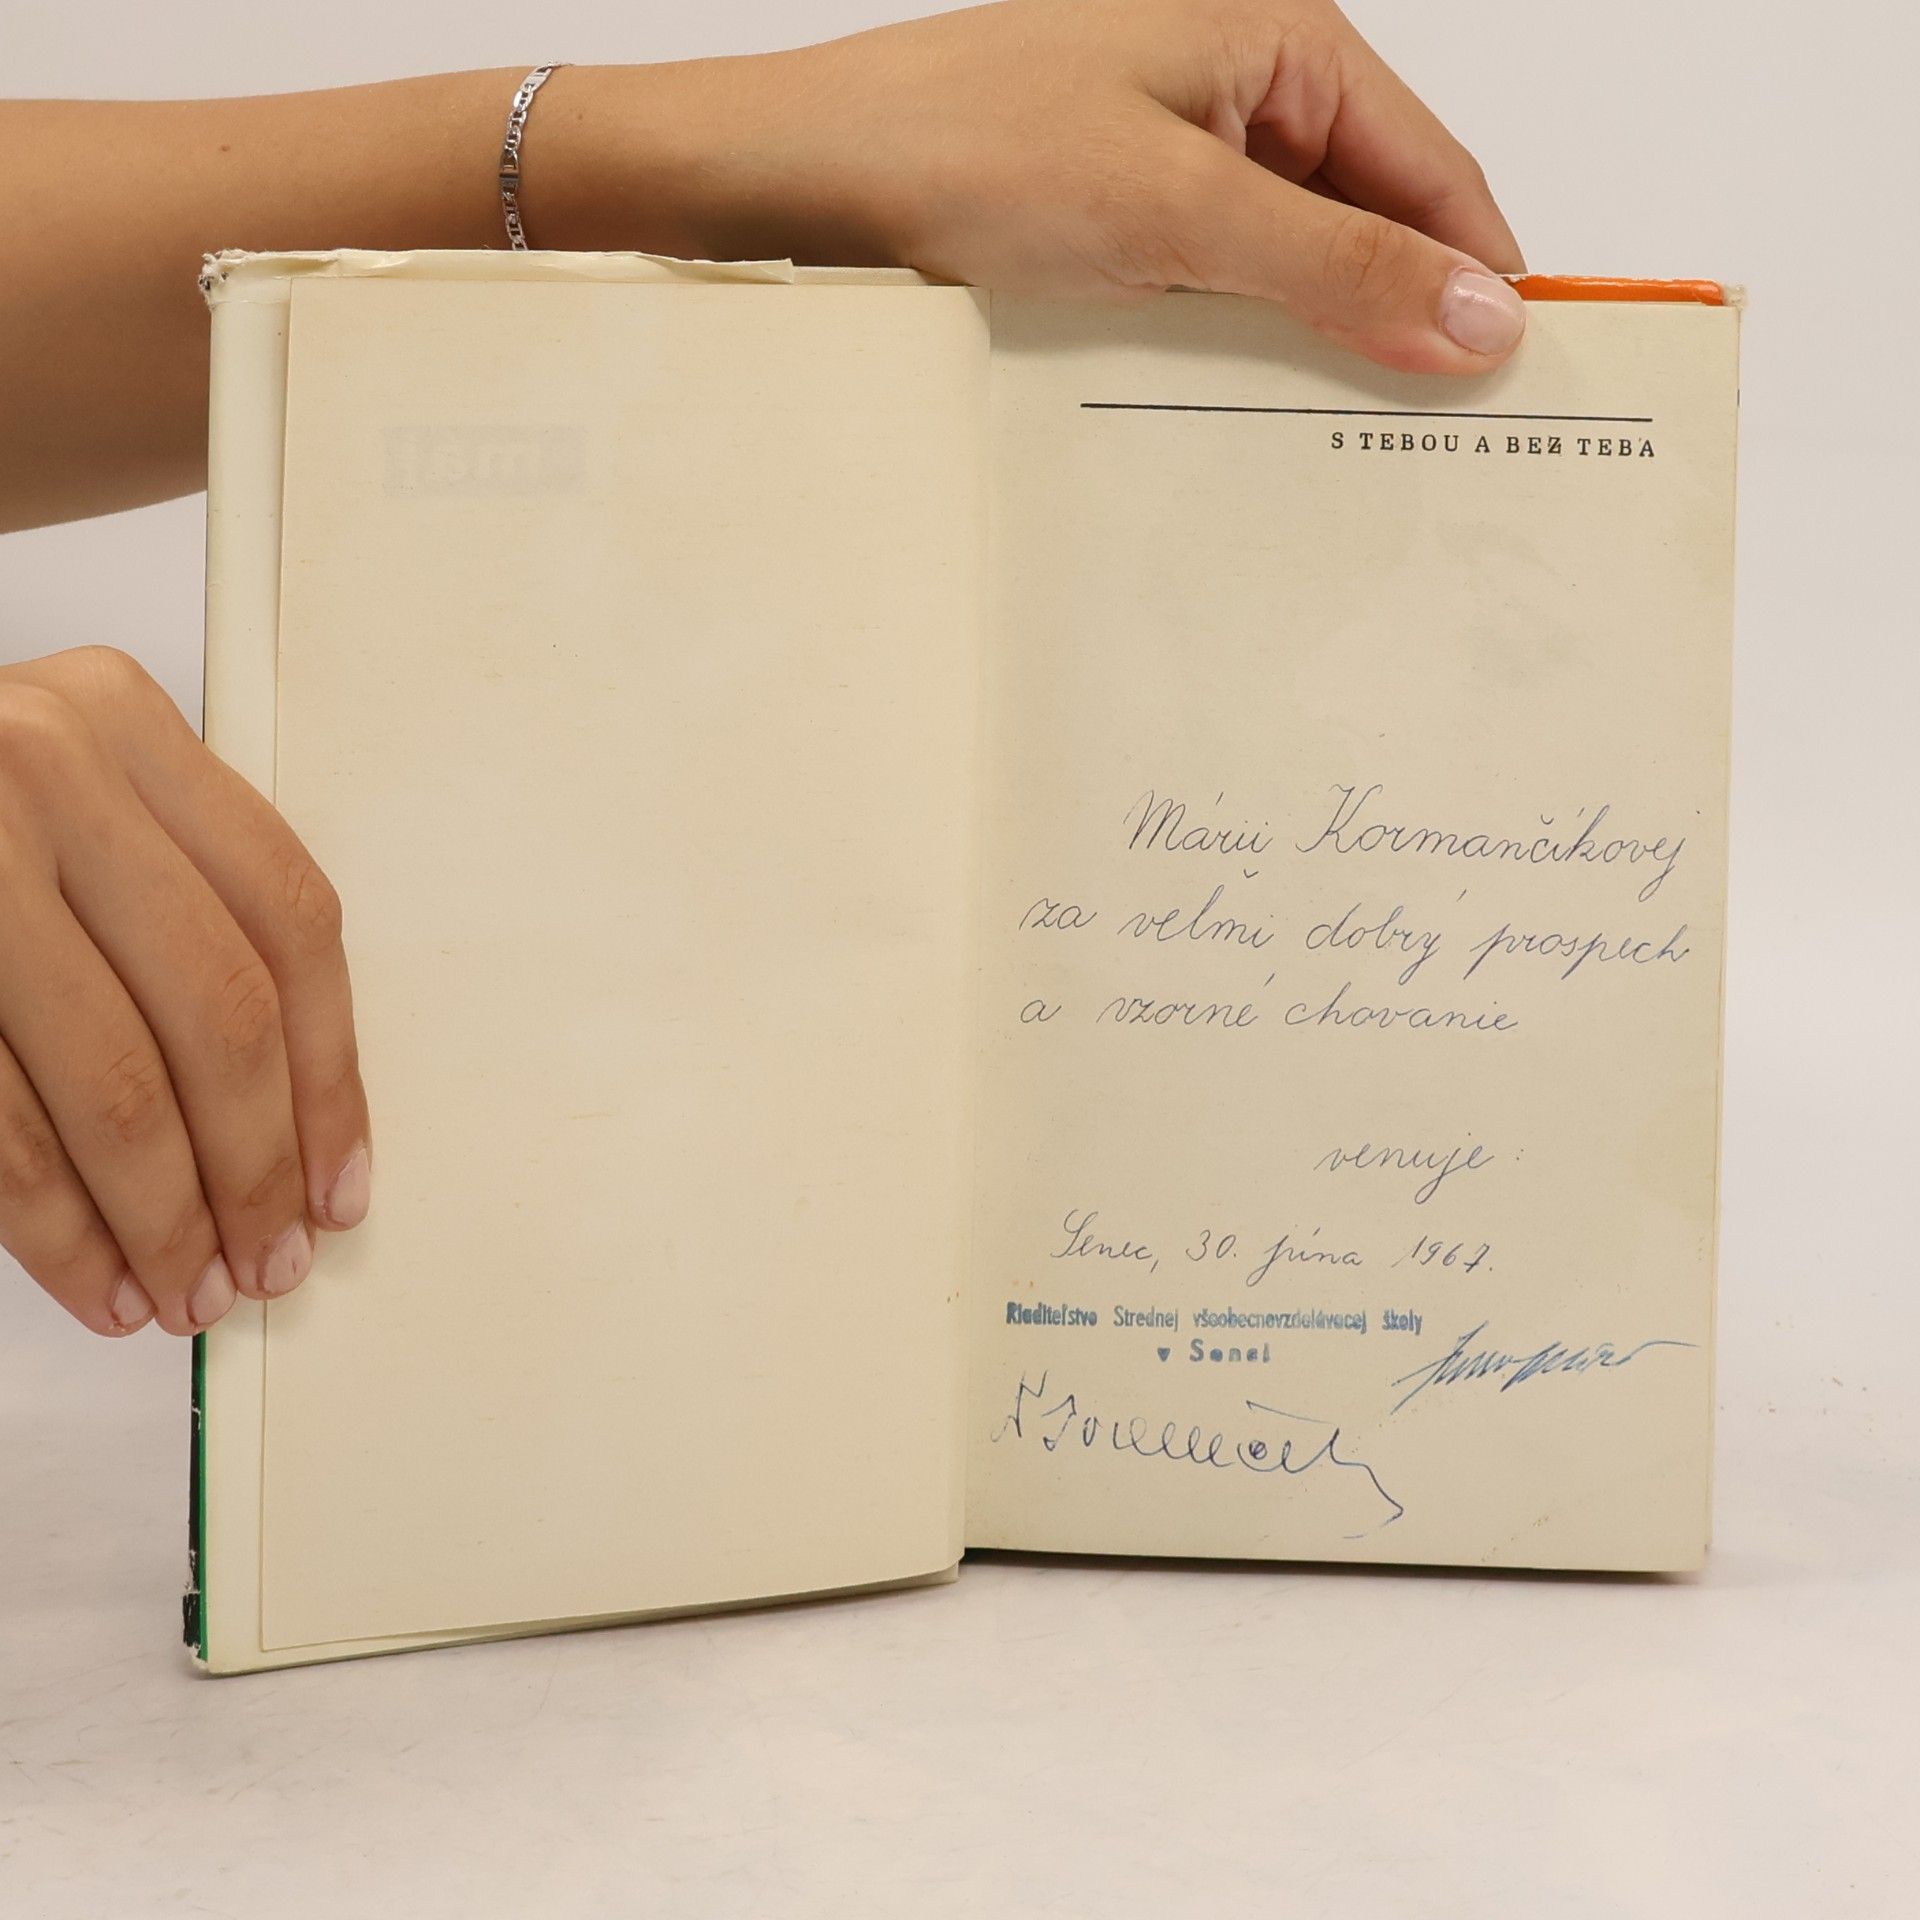 S TEBOU A BEZ TEBA
Márii Kormančíkovej
za veľmi dobrý prospech
a vzorné chovanie
venuje:
Senec, 30. júna 1967.
Riaditeľstvo Strednej všeobecnovzdelávacej školy
v Senci